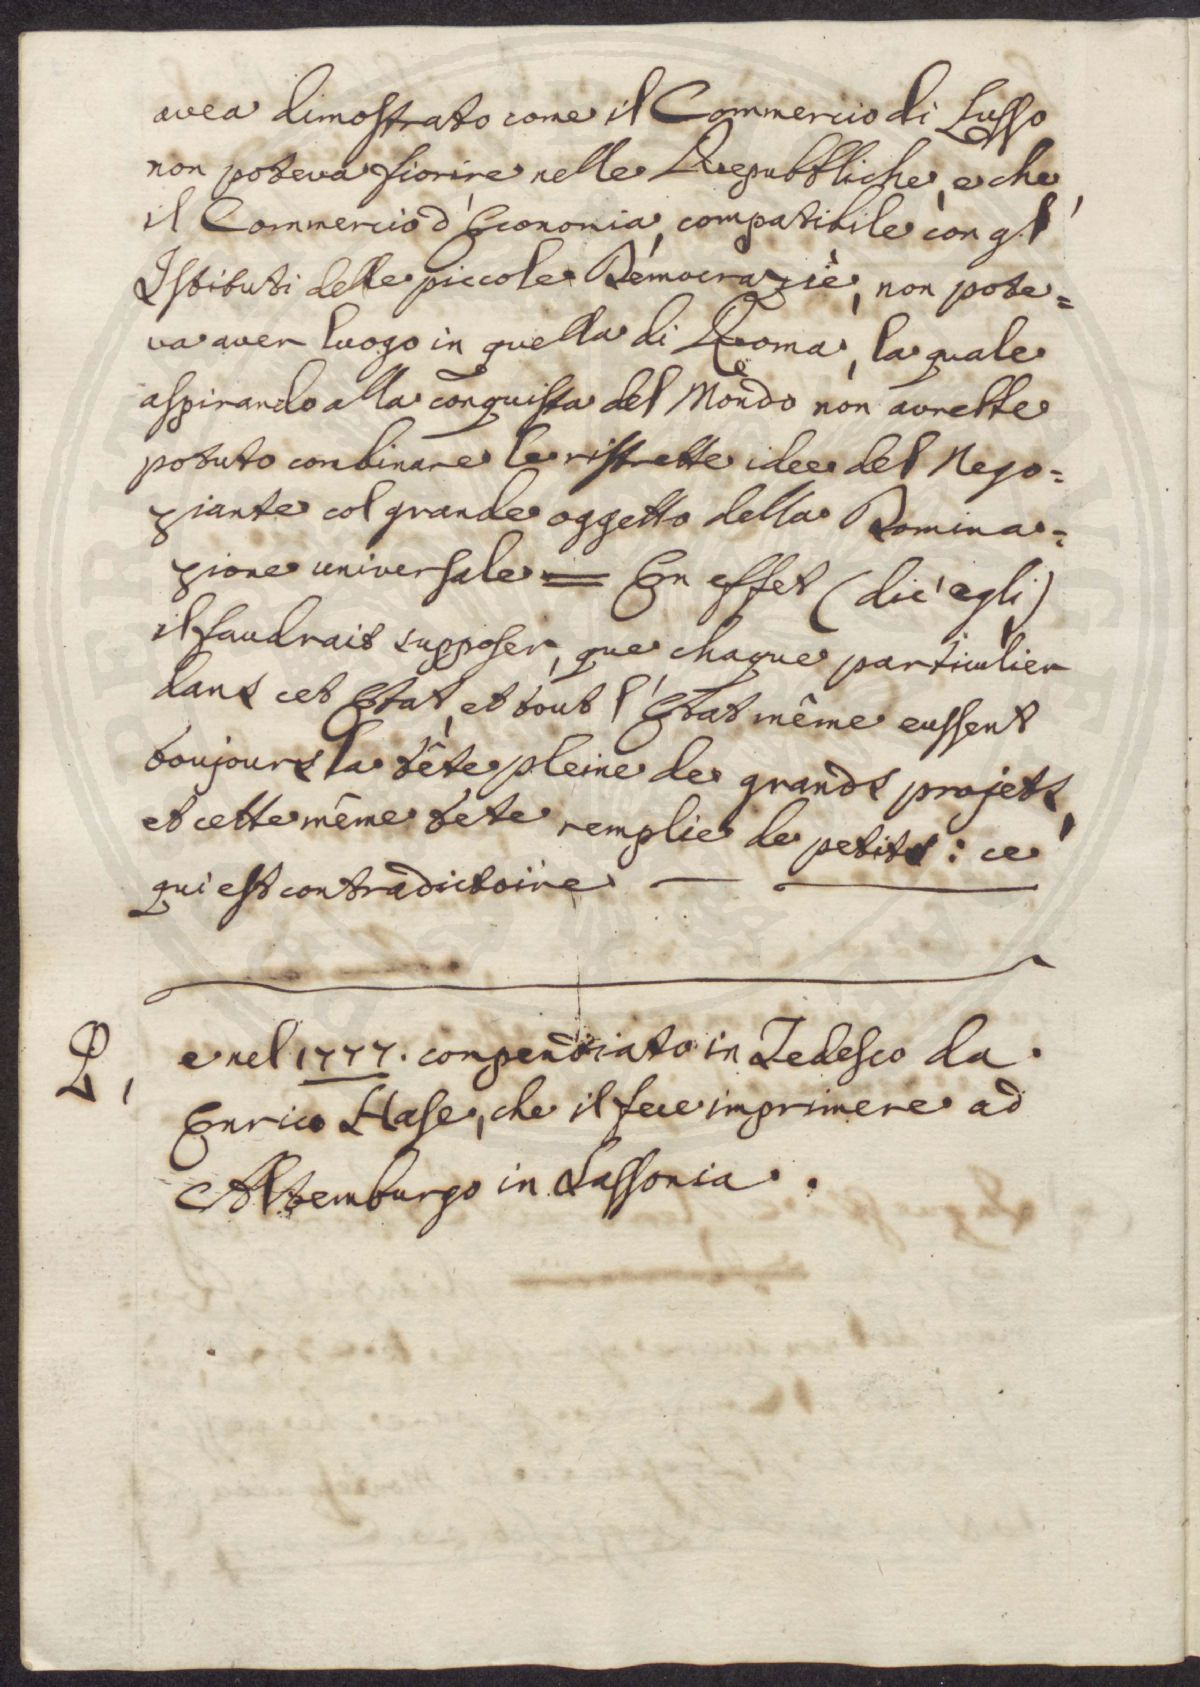 avea dimostrato come il Commercio di Lusso
non poteva fiorire nelle Repubbliche, e che
il Commercio d'Economia, compatibile con gl'
Istituti delle piccole Democrazie, non pote=
va aver luogo in quella di Roma, la quale
aspirando alla conquista del Mondo non avrebbe
potuto combinare le ristrette idee del Nego=
ziante col grande oggetto della Domina=
zione universale = En effet (dic'egli)
il faudrait supposer, que chaque particulier
dans cet Etat, et tout l'Etat même eussent
toujours la tête pleine de grands projets,
et cette même tete remplie de petits: ce
qui est contradictoire —
e nel 1777. compendiato in Tedesco da
Enrico Hase, che il fece imprimere ad
Altemburgo in Sassonia.